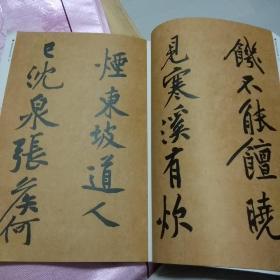 饑不能饘曉
見寒溪有炊
煙東坡道人
已沈泉張侯何